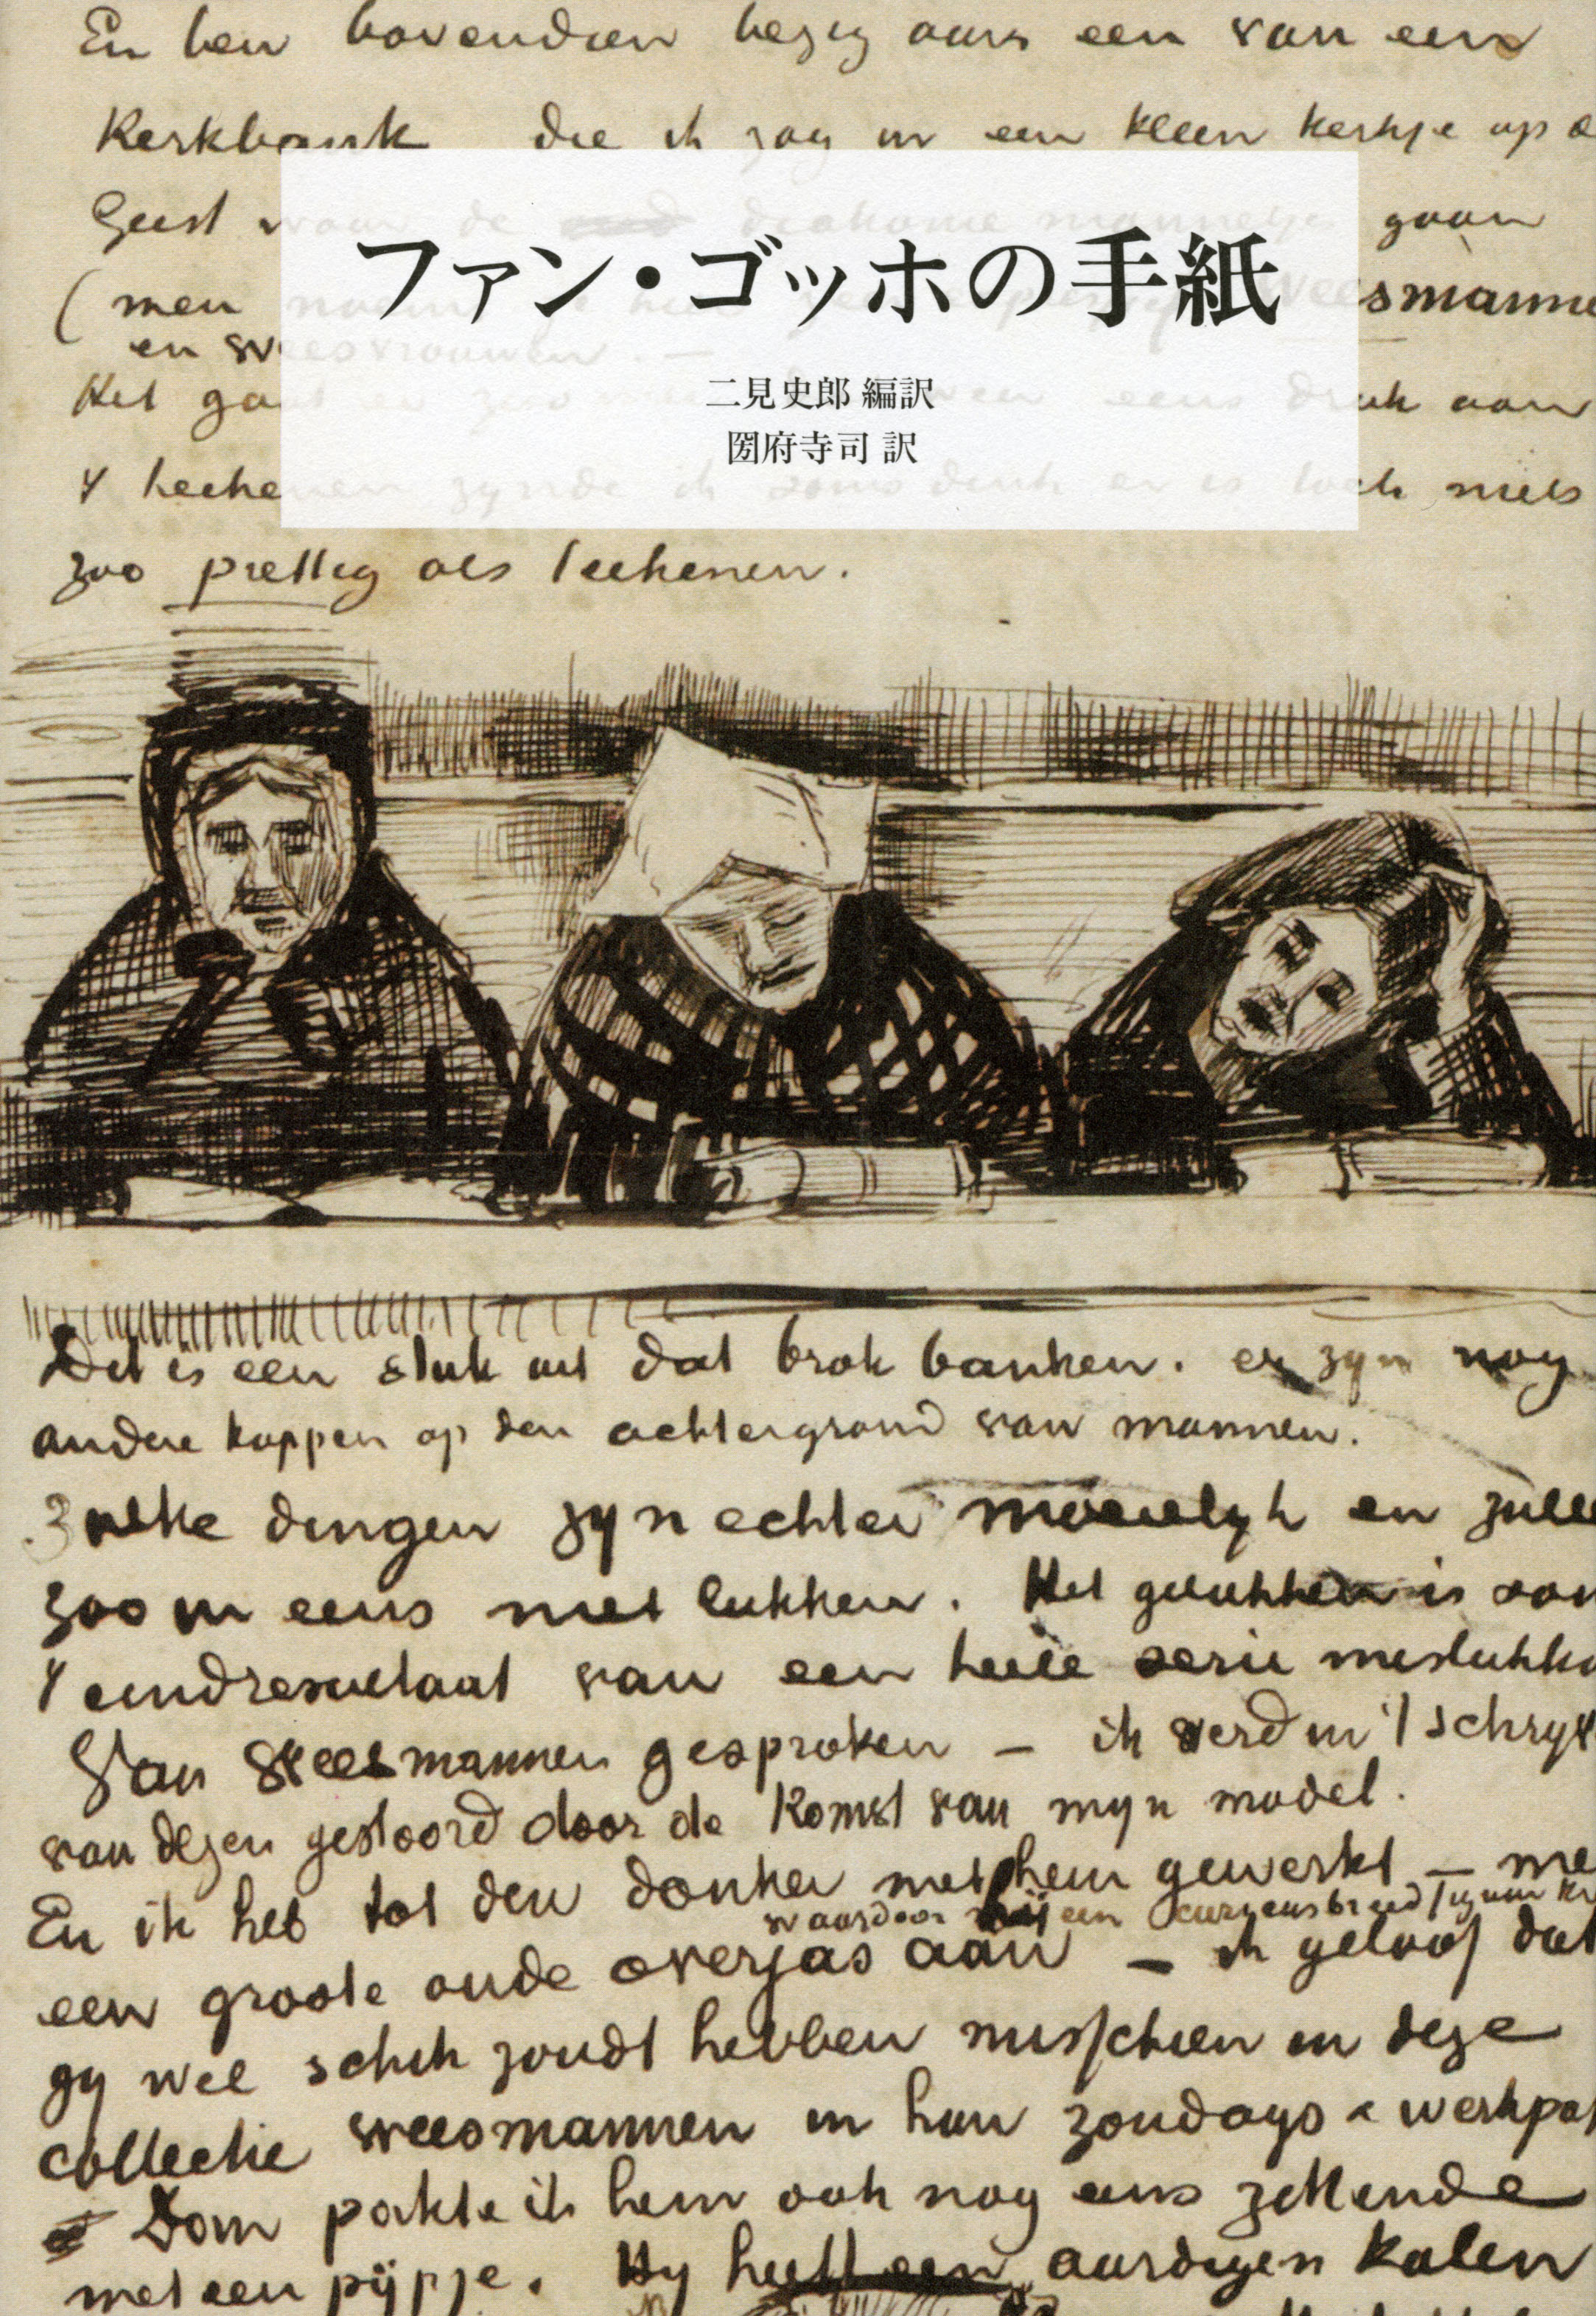 En ben bovendien bezig aan een van een
Kerkbank die ik zag in een kleen kerkje op d
Geest waar de diakonie mannetjes gaan
ファン・ゴッホの手紙
(men noemt weesmanne
en weesvrouwen. —
二見史郎 編訳
Het gaat eens druk aan
圀府寺司 訳
't teekenen zynde ik soms denk er is toch niets
zoo prettig als teekenen.
Dit is een stuk uit dat brok banken. er zyn nog
andere koppen op den achtergrond van mannen.
Zulke dingen zyn echter moeielyk en zulle
zoo in eens niet lukken. Het gelukken is van
't eindresultaat van een heele serie mislukki
Van Weesmannen gesproken — ik werd in 't schryv
van dezen gestoord door de komst van myn model.
En ik heb tot den donker met hem gewerkt — me
waardoor hij een
een groote oude overjas aan — ik geloof dat
gy wel schik zoudt hebben misschien in deze
collectie weesmannen in hun zondags & werkpa
Dan pakte ik hem ook nog eens zittende
met een pijpje. Hy heeft een aardigen kalen